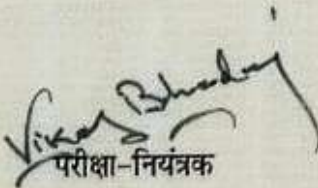 Vikas Bhadwaj
परीक्षा-नियंत्रक